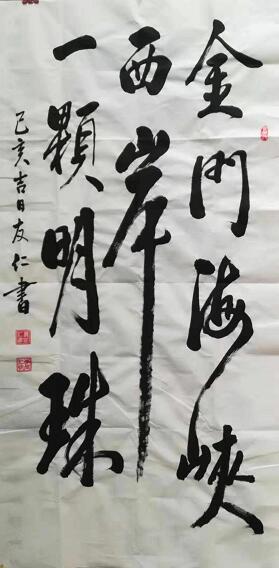 金門海峽
西岸
一顆明珠
己亥吉日友仁書